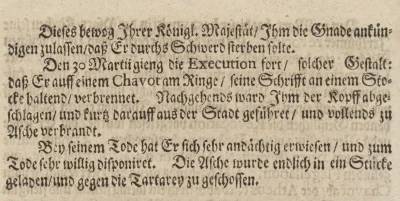 Dieses bewog Ihrer Königl. Majestät/ Ihm die Gnade ankün-
digen zulassen/ daß Er durchs Schwerd sterben solte.
Den 30 Martii gieng die Execution fort/ solcher Gestalt:
daß Er auff einem Chavot am Ringe/ seine Schrifft an einem Sto-
cke haltend/ verbrennet. Nachgehends ward Ihm der Kopff abge-
schlagen/ und kurtz darauff aus der Stadt geführet/ und vollends zu
Asche verbrandt.
Bey seinem Tode hat Er sich sehr andächtig erwiesen/ und zum
Tode sehr willig disponiret. Die Asche wurde endlich in ein Stücke
geladen/ und gegen die Tartarey zu geschossen.